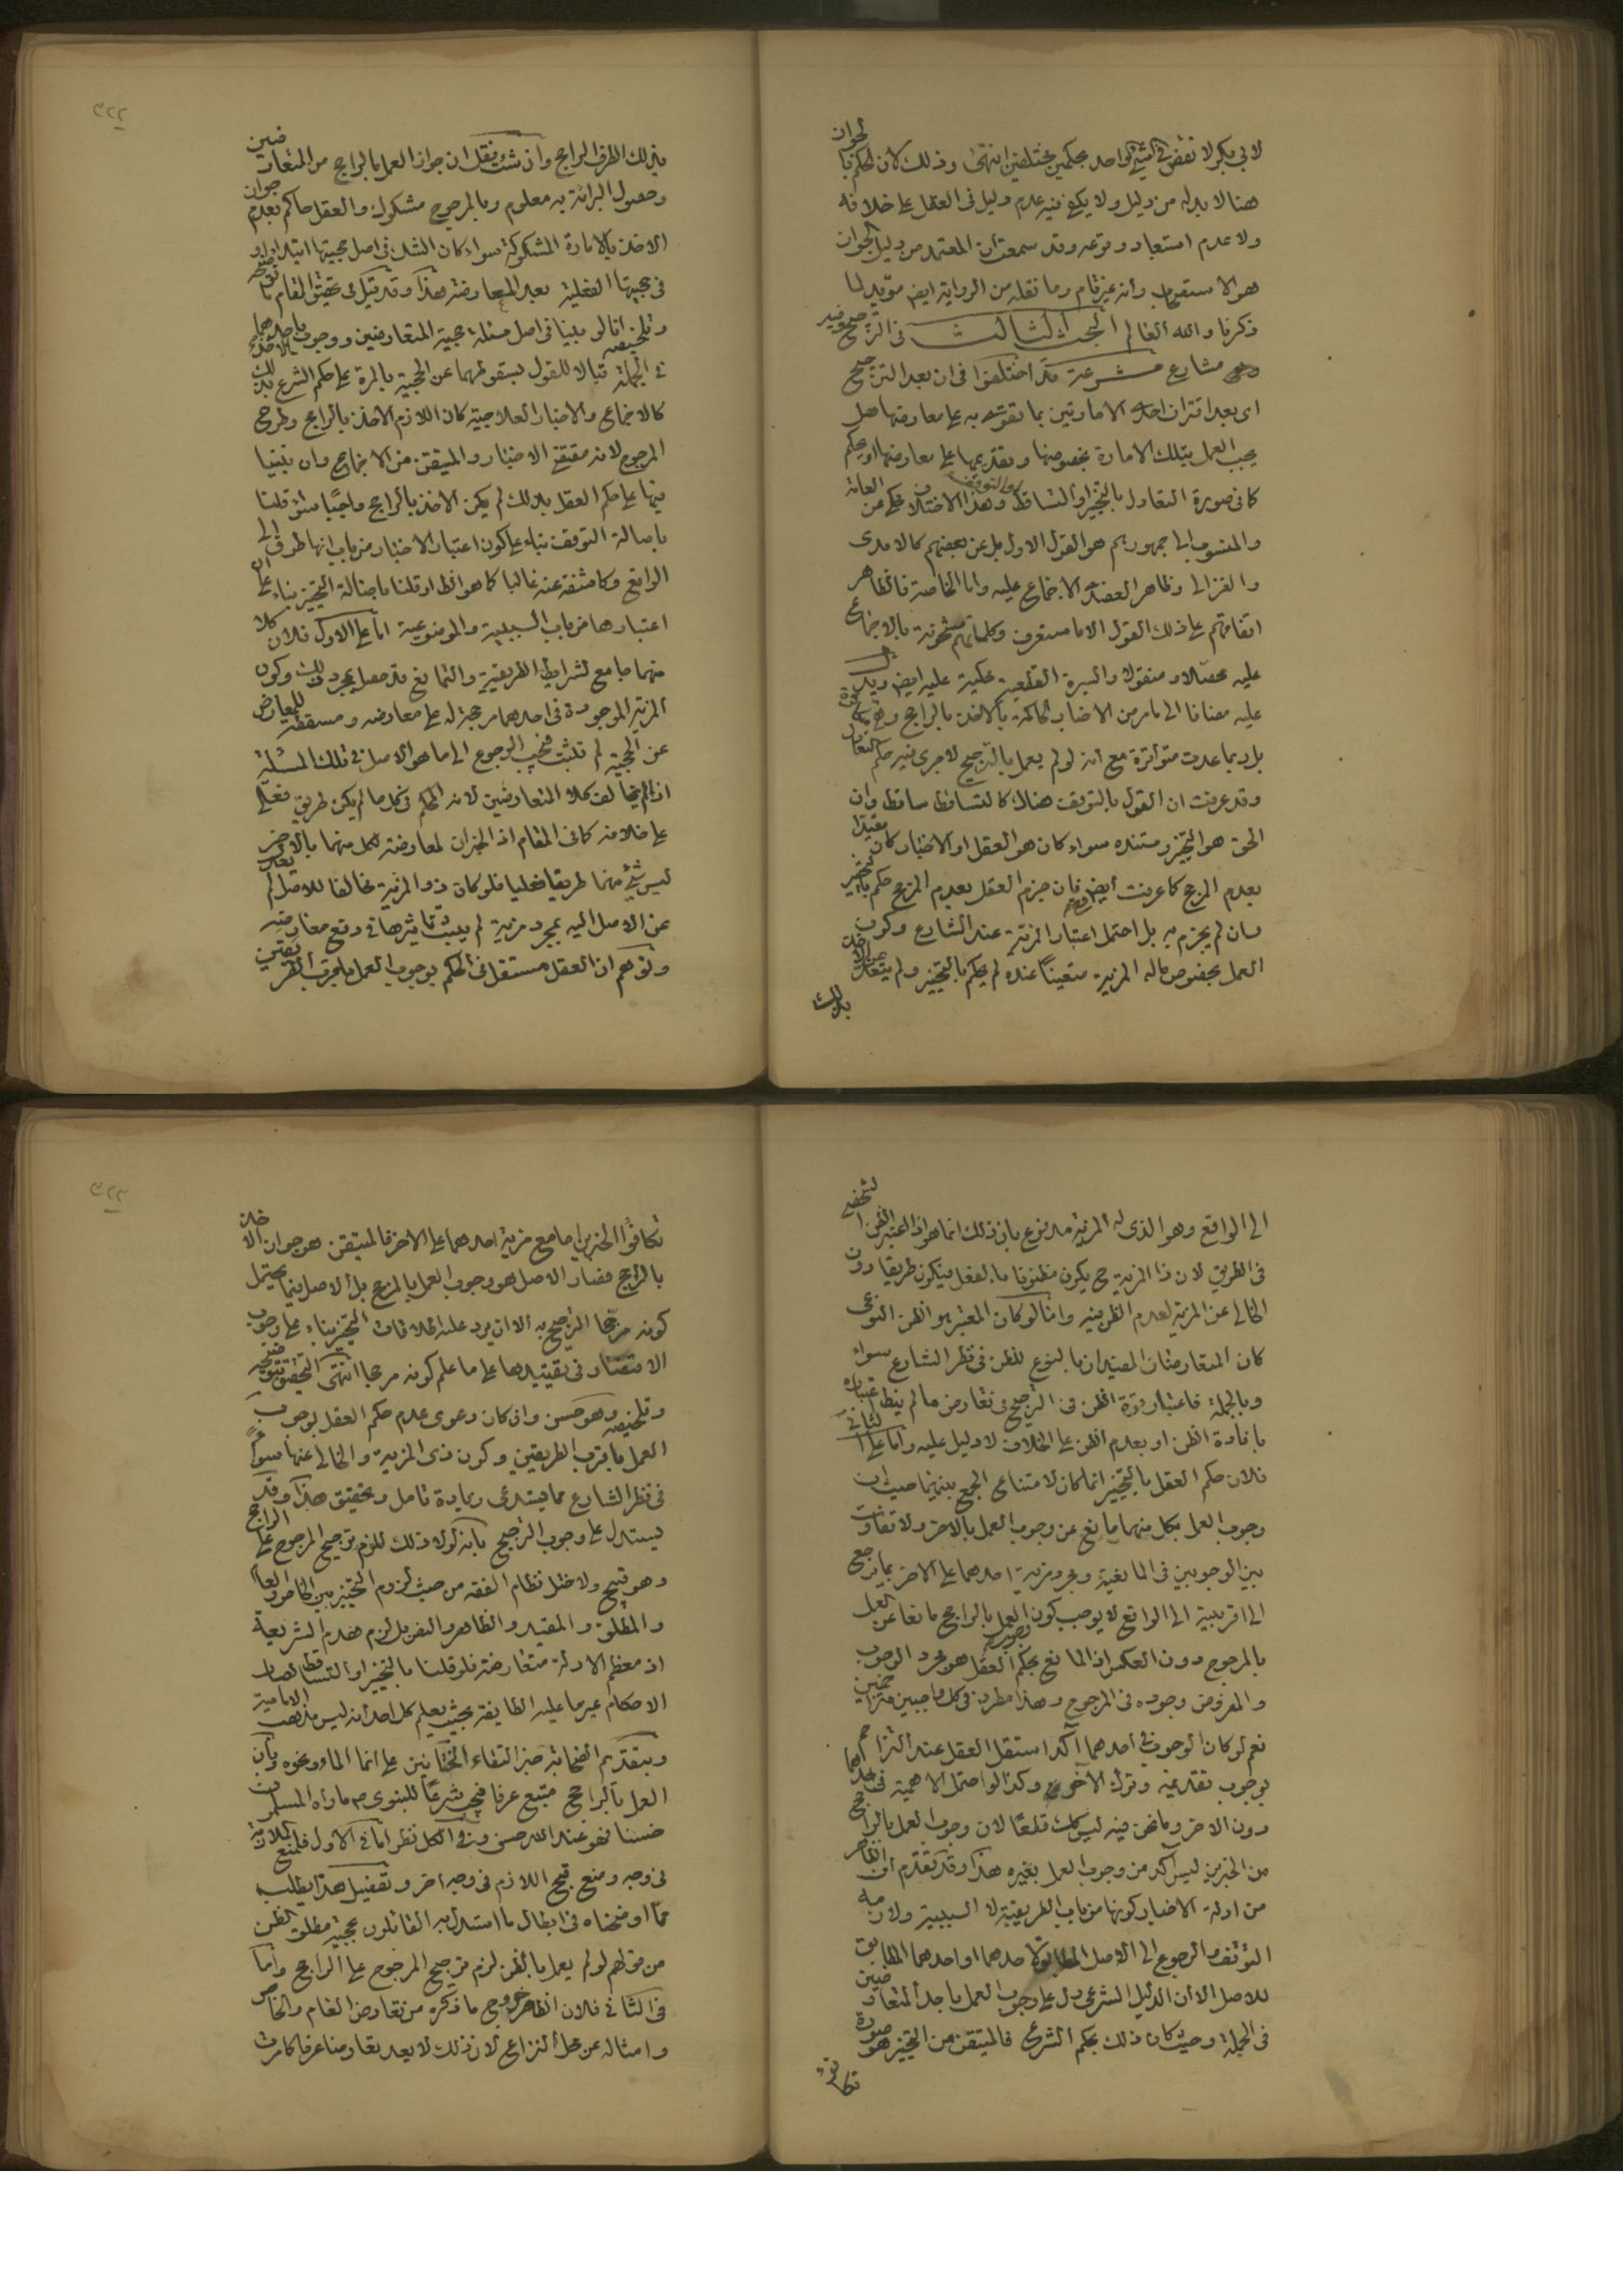 لابي بكر لا تقض في الشيء الواحد بحكمين مختلفين انتهى وذلك لان الحكم بالجواز
هنا لا بد له من دليل ولا يكفي فيه عدم دليل في العقل على خلافه
ولا عدم استبعاد وقوعه وقد سمعت ان المعتمد من دليل الجواز
هو الاستصحاب وانه غير تام وما نقله من الرواية ايض مؤيد لما
ذكرنا والله العالم البحث الثالث في الترجيح وفيه
مشارع مشرعة قد اختلفوا في ان بعد الترجيح
اى بعد اقتران احدى الامارتين بما تقوى به على معارضها هل
يجب العمل بتلك الامارة بخصوصها وتقديمها على معارضها او يحكم
كما في صورة التعادل بالتخيير او التساقط او التوقف وهذا الاختلاف محكى عن العامة
والمنسوب الى جمهورهم هو القول الاول بل عن بعضهم كالامدى
والغزالى وظاهر العضدى الاجماع عليه واما الخاصة فالظاهر
اتفاقهم على ذلك القول الا ما ستعرف وكلماتهم مشحونة بالاجماع
عليه محصلا ومنقولا والسيرة القطعية محكية عليه ايض ويدل
عليه مضافا الى ما مر من الاخبار الحاكمة بالاخذ بالراجح وهي
بل ربما عدت متواترة مع انه لو لم يعمل بالترجيح لاجرى فيه حكم التعادل
وقد عرفت ان القول بالتوقف هناك كالتساقط ساقط وان
الحق هو التخيير ومستنده سواء كان هو العقل او الاخبار كان مقيدا
بعدم المرجح كما عرفت ايض فان جزم العقل بعدم المرجح حكم بالتخيير
وان لم يجزم به بل احتمل اعتبار المزية عند الشارع وكون
العمل بخصوص ماله المزية متعينا عنده لم يحكم بالتخيير ولم يتعد عن الاخذ
بذلك
٣٢٢
بذلك الطرف الراجح وان شئت نقل ان جواز العمل بالراجح من المتعارضين
وحصول البرائة به معلوم وبالمرجوح مشكوك والعقل حاكم بعدم جواز
الاخذ بالامارة المشكوكة سواء كان الشك في اصل حجيتها ابتداء او
في حجيتها الفعلية بعد المعارضة هذا وقد قيل في تحقيق المقام ما توضيحه
وتلخيصه انا لو بنينا في اصل مسئلة حجية المتعارضين ووجوب الاخذ باحدهما
في الجملة قبالا للقول بسقوطهما عن الحجية بالمرة على حكم الشرع بذلك
كالاجماع والاخبار العلاجية كان اللازم الاخذ بالراجح وطرح
المرجوح لانه مقتضى الاخبار والمتيقن من الاجماع وان بنينا
فيها على حكم العقل بذلك لم يكن الاخذ بالراجح واجبا سواء قلنا
باصالة التوقف بناء على كون اعتبار الاخبار من باب انها طرف الى
الواقع وكاشفة عنه غالبا كما هو الظ او قلنا باصالة التخيير بناء على
اعتبارها من باب السببية والموضوعية اما على الاول فلان كلا
منهما جامع لشرايط الطريقية والتمانع قد حصل بمجرد ذلك وكون
المزية الموجودة في احدهما مرجحة له على معارضه ومسقطة للمعارض
عن الحجية لم تثبت فيجب الرجوع الى ما هو الاصل في تلك المسئلة
اذا لم يخالف كلا المتعارضين لانه الحكم في كل ما لم يكن طريق فعلى
على خلافه كما في المقام اذ الخبران لمعارضة كل منهما بالاخر
ليس شيء منهما طريقا فعليا فلو كان ذو المزية مخالفا للاصل لم
عن الاصل اليه بمجرد مزية لم يثبت تاثيرها في دفع معارضه
وتوهم ان العقل مستقل في الحكم بوجوب العمل باقرب الطريقين
الى الواقع وهو الذى له المزية مدفوع بان ذلك انما هو اذا اعتبر الظن الشخصى
في الطريق لان ذا المزية ح يكون مظنونا بالفعل فيكون طريقا دون
الخالى عن المزية لعدم الظن فيه واما لو كان المعتبر هو الظن النوعى
كان المتعارضان المفيدان بالنوع للظن في نظر الشارع سواء
وبالجملة فاعتبار قوة الظن في الترجيح في تعارض ما لم ينط اعتباره
بافادة الظن او بعدم الظن على الخلاف لا دليل عليه واما على الثانى
فلان حكم العقل بالتخيير انما كان لامتناع الجمع بينهما حيث ان
وجوب العمل بكل منهما مانع عن وجوب العمل بالاخر ولا تفاوت
بين الوجوبين في المانعية ومجرد مزية احدهما على الاخر بما يرجع
الى اقربيته الى الواقع لا يوجب كون العمل بالراجح مانعا عن العمل
بالمرجوح دون العكس اذ المانع بحكم العقل هو مجرد الوجوب
والمفروض وجوده في المرجوح وهذا مطرد في كل واجبين متزاحمين
نعم لو كان الوجوب في احدهما آكد استقل العقل عند التزاحم
بوجوب تقديمه وترك الاخر وكذا لو احتمل الاهمية في احدهما
دون الاخر وما نحن فيه ليس كك قطعا لان وجوب العمل بالراجح
من الخبرين ليس آكد من وجوب العمل بغيره هذا وقد تقدم ان الظاهر
من ادلة الاخبار كونها من باب الطريقية لا السببية ولازمه
التوقف والرجوع الى الاصل المطابق لاحدهما او احدهما المطابق
للاصل الا ان الدليل الشرعى دل على وجوب العمل باحد المتعارضين
في الجملة وحيث كان ذلك بحكم الشرع فالمتيقن من التخيير هو صورة
تكافؤ
٣٢٣
تكافؤ الخبرين اما مع مزية احدهما على الاخر فالمتيقن هو جواز الاخذ
بالراجح فصار الاصل هو وجوب العمل بالمرجح بل الاصل فيما يحتمل
كونه مرجحا الترجيح به الا ان يرد عليه اطلاقات التخيير بناء على وجوب
الاقتصار في تقييدها على ما علم كونه مرجحا انتهى التحقيق بتوضيحه
وتلخيصه وهو حسن وان كان دعوى عدم حكم العقل بوجوب
العمل باقرب الطريقين وكون ذى المزية والخالى عنها سواء
في نظر الشارع مما يستدعى زيادة تامل وتحقيق هذا وقد
يستدل على وجوب الترجيح بانه لولا ذلك للزم ترجيح المرجوح على الراجح
وهو قبيح ولاختل نظام الفقه من حيث لزوم التخيير بين الخاص والعام
والمطلق والمقيد والظاهر والنص بل لزم هدم الشريعة
اذ معظم الادلة متعارضة فلو قلنا بالتخيير او التساقط لصار
الاحكام غير ما عليه الطايفة بحيث يعلم كل احد انه ليس مذهب الامامية
وبتقديم الصحابة خبر التقاء الختانين على انما الماء ونحوه وبان
العمل بالراجح متبع عرفا فيجب شرعا للنبوى ص ما راه المسلمون
حسنا فهو عند الله حسن وفي الكل نظر اما في الاول فلمنع الملازمة
في وجه ومنع قبح اللازم في وجه اخر وتفصيل هذا يطلب
مما اوضحناه في ابطال ما استدل به القائلون بحجية مطلق الظن
من قولهم لو لم يعمل بالظن لزم ترجيح المرجوح على الراجح واما
في الثانى فلان الظاهر خروج ما ذكره من تعارض العام والخاص
وامثاله عن محل النزاع لان ذلك لا يعد تعارضا عرفا كما مرت